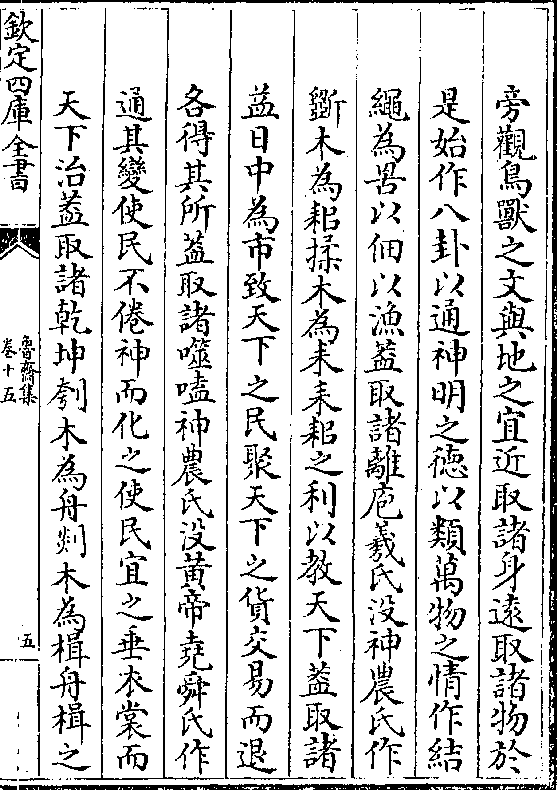 旁觀鳥獸之文與地之宜近取諸身遠取諸物於
是始作八卦以通神明之德以類萬物之情作結
繩為罟以佃以漁葢取諸離庖羲氏没神農氏作
斵木為耜揉木為耒耒耜之利以教天下葢取諸
益日中為市致天下之民聚天下之貨交易而退
各得其所葢取諸噬嗑神農氏没黄帝堯舜氏作
通其變使民不倦神而化之使民宜之垂衣裳而
天下治葢取諸乾坤刳木為舟剡木為楫舟楫之
欽定四庫全書
魯齋集
卷十五
五